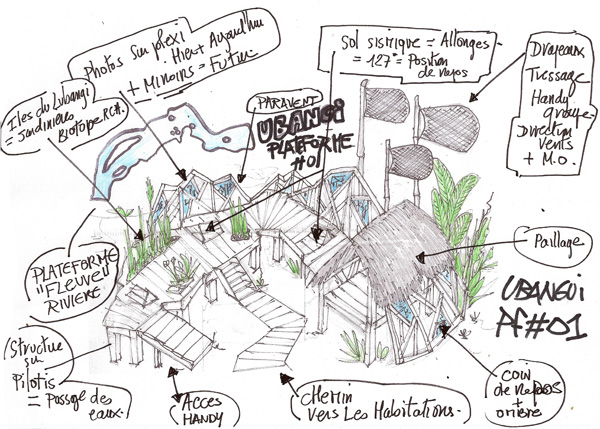 Photos sur plexi
Hier + Aujourd'hui
+ Miroirs = Futur
Iles du Lubangi
= Jardinières
BIOTOPE RCA.
PARAVENT
UBANGI
PLATEFORME
#01
Sol sismique = Allonges
= 127° = Position
de repos
Drapeaux
Tressage
Handy
groupe
Direction
vents
+ M.O.
PLATEFORME
"FLEUVE"
RIVIERE
Paillage
UBANGUI
PF#01
Structure
sur
Pilotis
= Passage des
eaux.
ACCES
HANDY
CHEMIN
vers Les Habitations.
COIN
de REPOS
+
ombre